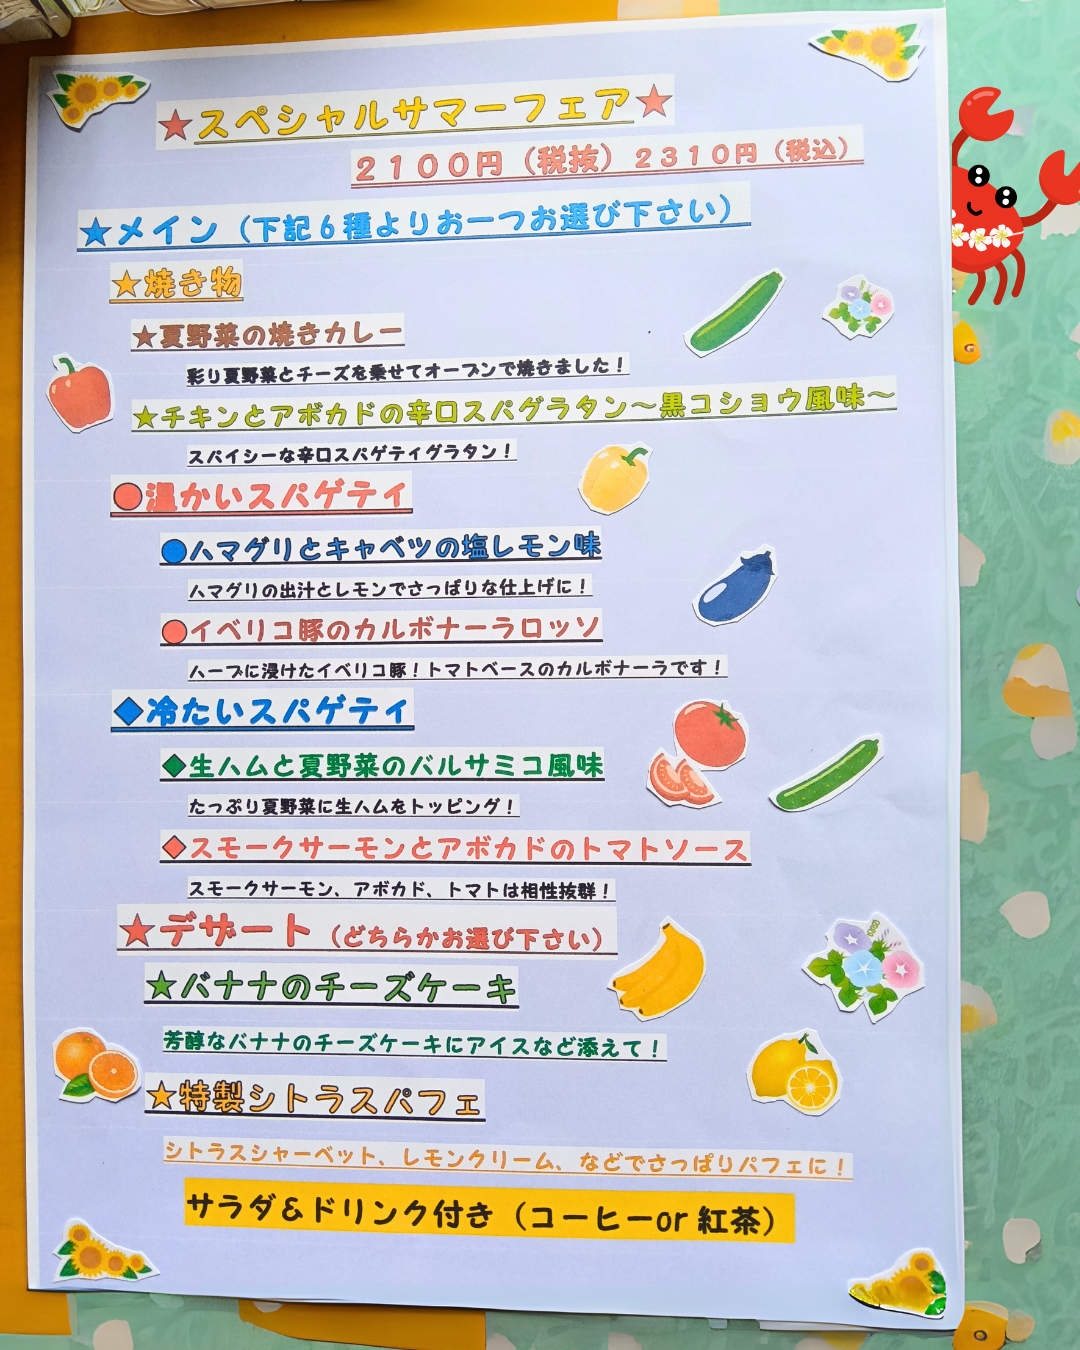 ★スペシャルサマーフェア★
２１００円（税抜）２３１０円（税込）
★メイン（下記６種よりお一つお選び下さい）
★焼き物
★夏野菜の焼きカレー
彩り夏野菜とチーズを乗せてオーブンで焼きました！
★チキンとアボカドの辛口スパグラタン～黒コショウ風味～
スパイシーな辛口スパゲティグラタン！
●温かいスパゲティ
●ハマグリとキャベツの塩レモン味
ハマグリの出汁とレモンでさっぱりな仕上げに！
●イベリコ豚のカルボナーラロッソ
ハーブに浸けたイベリコ豚！トマトベースのカルボナーラです！
◆冷たいスパゲティ
◆生ハムと夏野菜のバルサミコ風味
たっぷり夏野菜に生ハムをトッピング！
◆スモークサーモンとアボカドのトマトソース
スモークサーモン、アボカド、トマトは相性抜群！
★デザート（どちらかお選び下さい）
★バナナのチーズケーキ
芳醇なバナナのチーズケーキにアイスなど添えて！
★特製シトラスパフェ
シトラスシャーベット、レモンクリーム、などでさっぱりパフェに！
サラダ＆ドリンク付き（コーヒーor 紅茶）